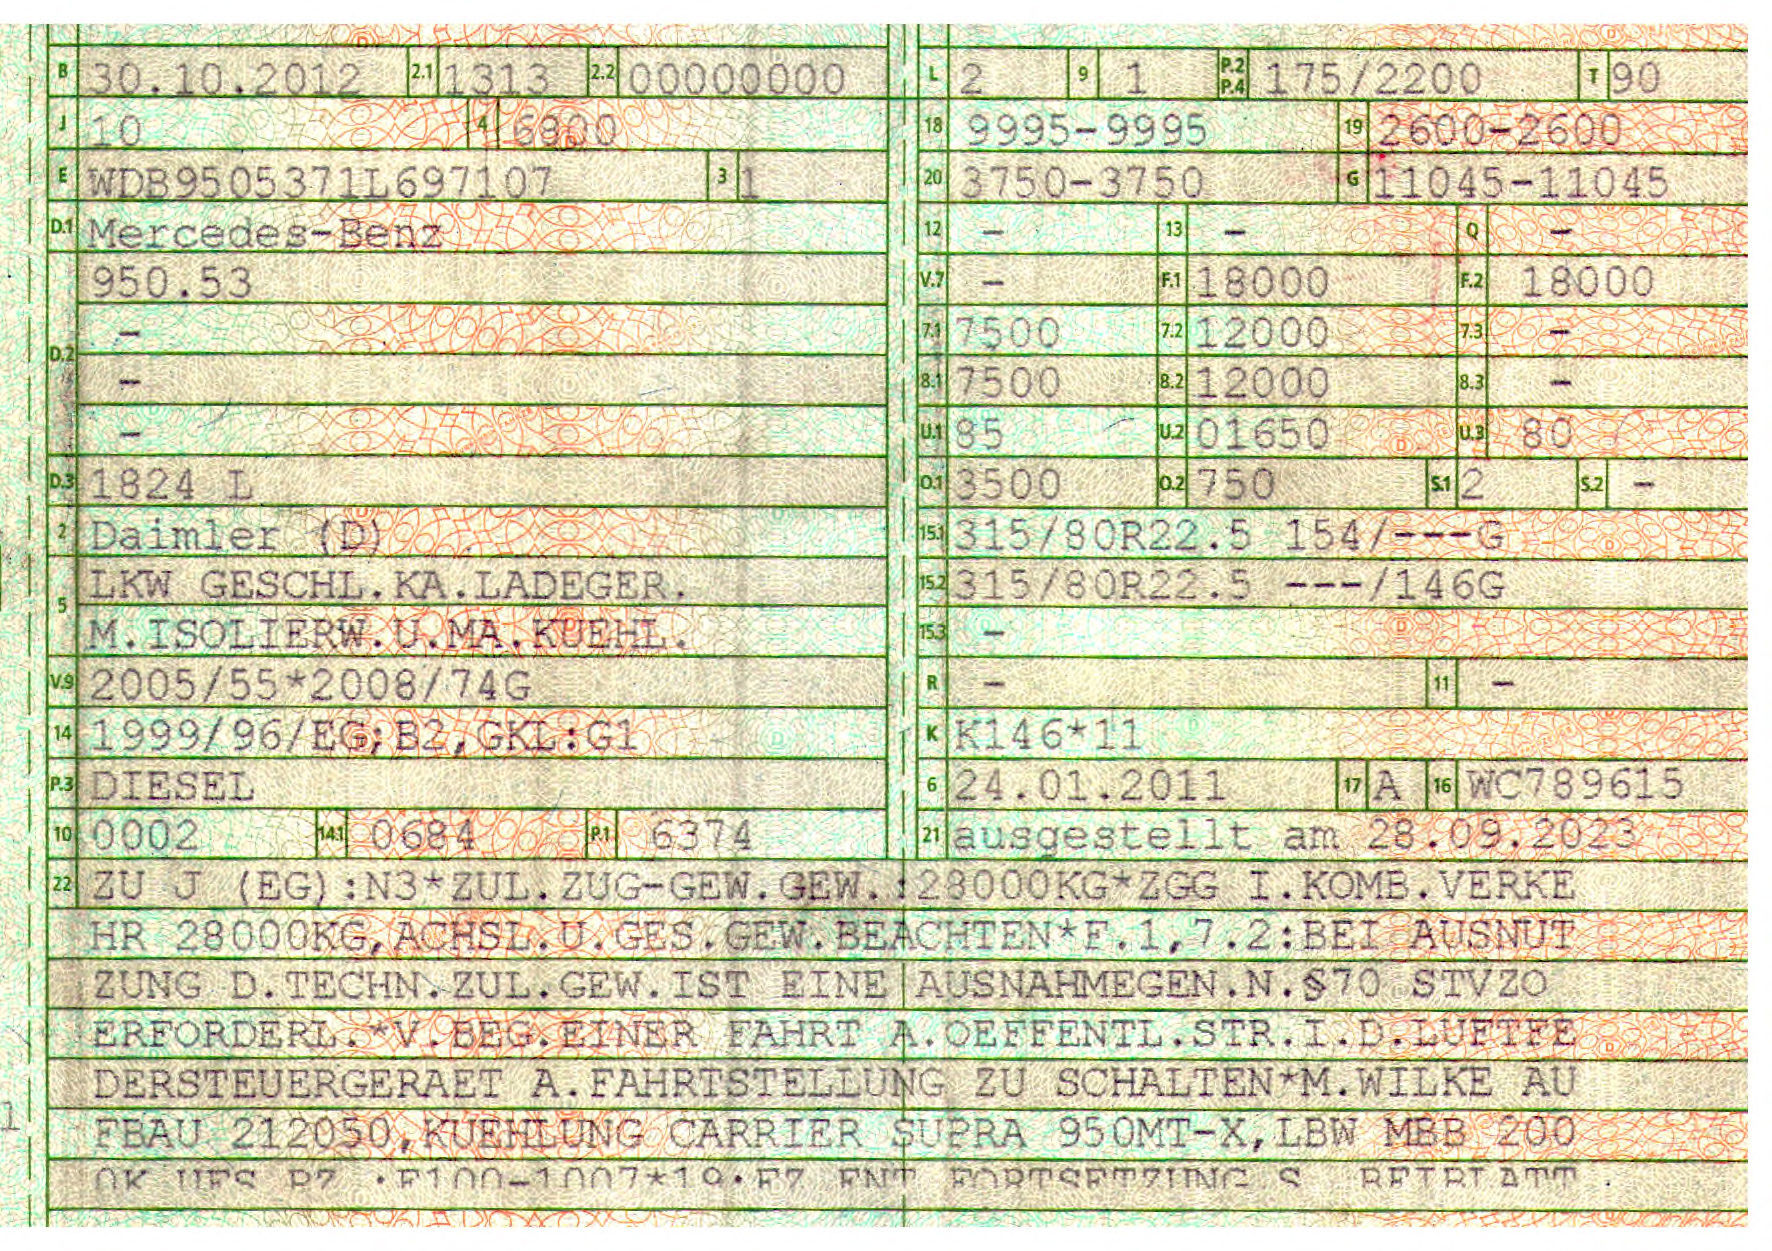 B 30.10.2012 2.1 1313 2.2 00000000
J 10 4 6800
E WDB9505371L697107 3 1
D.1 Mercedes-Benz
950.53
-
D.2 -
-
D.3 1824 L
2 Daimler (D)
LKW GESCHL.KA.LADEGER.
5 M.ISOLIERW.U.MA.KUEHL.
V.9 2005/55*2008/74G
14 1999/96/EG;B2,GKL:G1
P.3 DIESEL
10 0002 14.1 0684 P.1 6374
L 2 9 1 P.2 P.4 175/2200 T 90
18 9995-9995 19 2600-2600
20 3750-3750 G 11045-11045
12 - 13 - Q -
V.7 - F.1 18000 F.2 18000
7.1 7500 7.2 12000 7.3 -
8.1 7500 8.2 12000 8.3 -
U.1 85 U.2 01650 U.3 80
O.1 3500 O.2 750 S.1 2 S.2 -
15.1 315/80R22.5 154/---G
15.2 315/80R22.5 ---/146G
15.3 -
R - 11 -
K K146*11
6 24.01.2011 17 A 16 WC789615
21 ausgestellt am 28.09.2023
22 ZU J (EG):N3*ZUL.ZUG-GEW.GEW.:28000KG*ZGG I.KOMB.VERKE
HR 28000KG,ACHSL.U.GES.GEW.BEACHTEN*F.1,7.2:BEI AUSNUT
ZUNG D.TECHN.ZUL.GEW.IST EINE AUSNAHMEGEN.N.§70 STVZO
ERFORDERL.*V.BEG.EINER FAHRT A.OEFFENTL.STR.I.D.LUFTFE
DERSTEUERGERAET A.FAHRTSTELLUNG ZU SCHALTEN*M.WILKE AU
FBAU 212050,KUEHLUNG CARRIER SUPRA 950MT-X,LBW MBB 200
FORTSETZUNG S. BEIBLATT